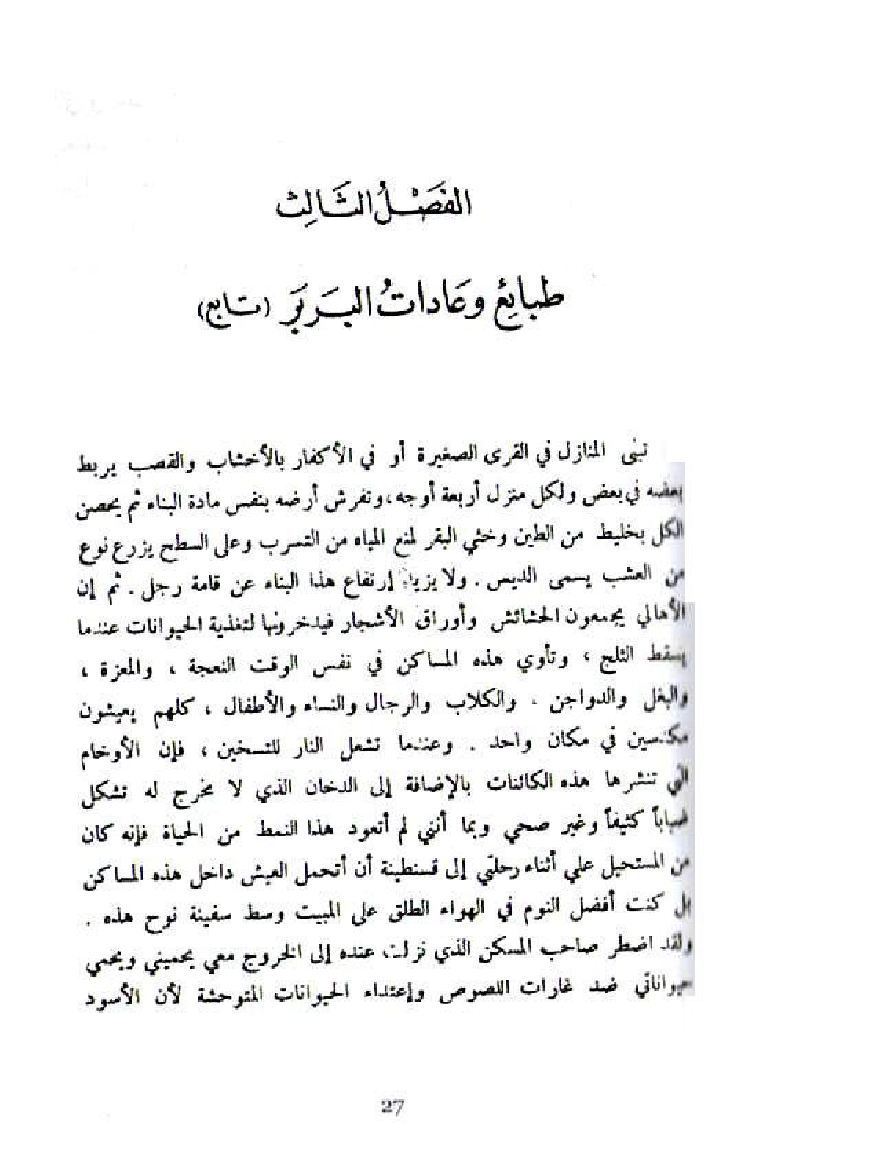 الفَصْلُ الثَّالِث
طبائِع وعَادَاتُ البَربَر (تابع)
تبنى المنازل في القرى الصغيرة أو في الأكفار بالأخشاب والقصب يربط
بعضه في بعض ولكل منزل أربعة أوجه، وتفرش أرضه بنفس مادة البناء ثم يحصن
الكل بخليط من الطين وخثي البقر لمنع المياه من التسرب وعلى السطح يزرع نوع
من العشب يسمى الديس . ولا يزيد إرتفاع هذا البناء عن قامة رجل . ثم إن
الأهالي يجمعون الحشائش وأوراق الأشجار فيدخرونها لتغذية الحيوانات عندما
يسقط الثلج ، وتأوي هذه المساكن في نفس الوقت النعجة ، والمعزة ،
والبغل والدواجن . والكلاب والرجال والنساء والأطفال ، كلهم يعيشون
مكدسين في مكان واحد . وعندما تشعل النار للتسخين ، فإن الأوخام
التي تنشرها هذه الكائنات بالإضافة إلى الدخان الذي لا مخرج له تشكل
ضباباً كثيفاً وغير صحي وبما أنني لم أتعود هذا النمط من الحياة فإنه كان
من المستحيل علي أثناء رحلتي إلى قسنطينة أن أتحمل العيش داخل هذه المساكن
بل كنت أفضل النوم في الهواء الطلق على المبيت وسط سفينة نوح هذه .
ولقد اضطر صاحب المسكن الذي نزلت عنده إلى الخروج معي يحميني ويحمي
حيواناتي ضد غارات اللصوص وإعتداء الحيوانات المتوحشة لأن الأسود
27